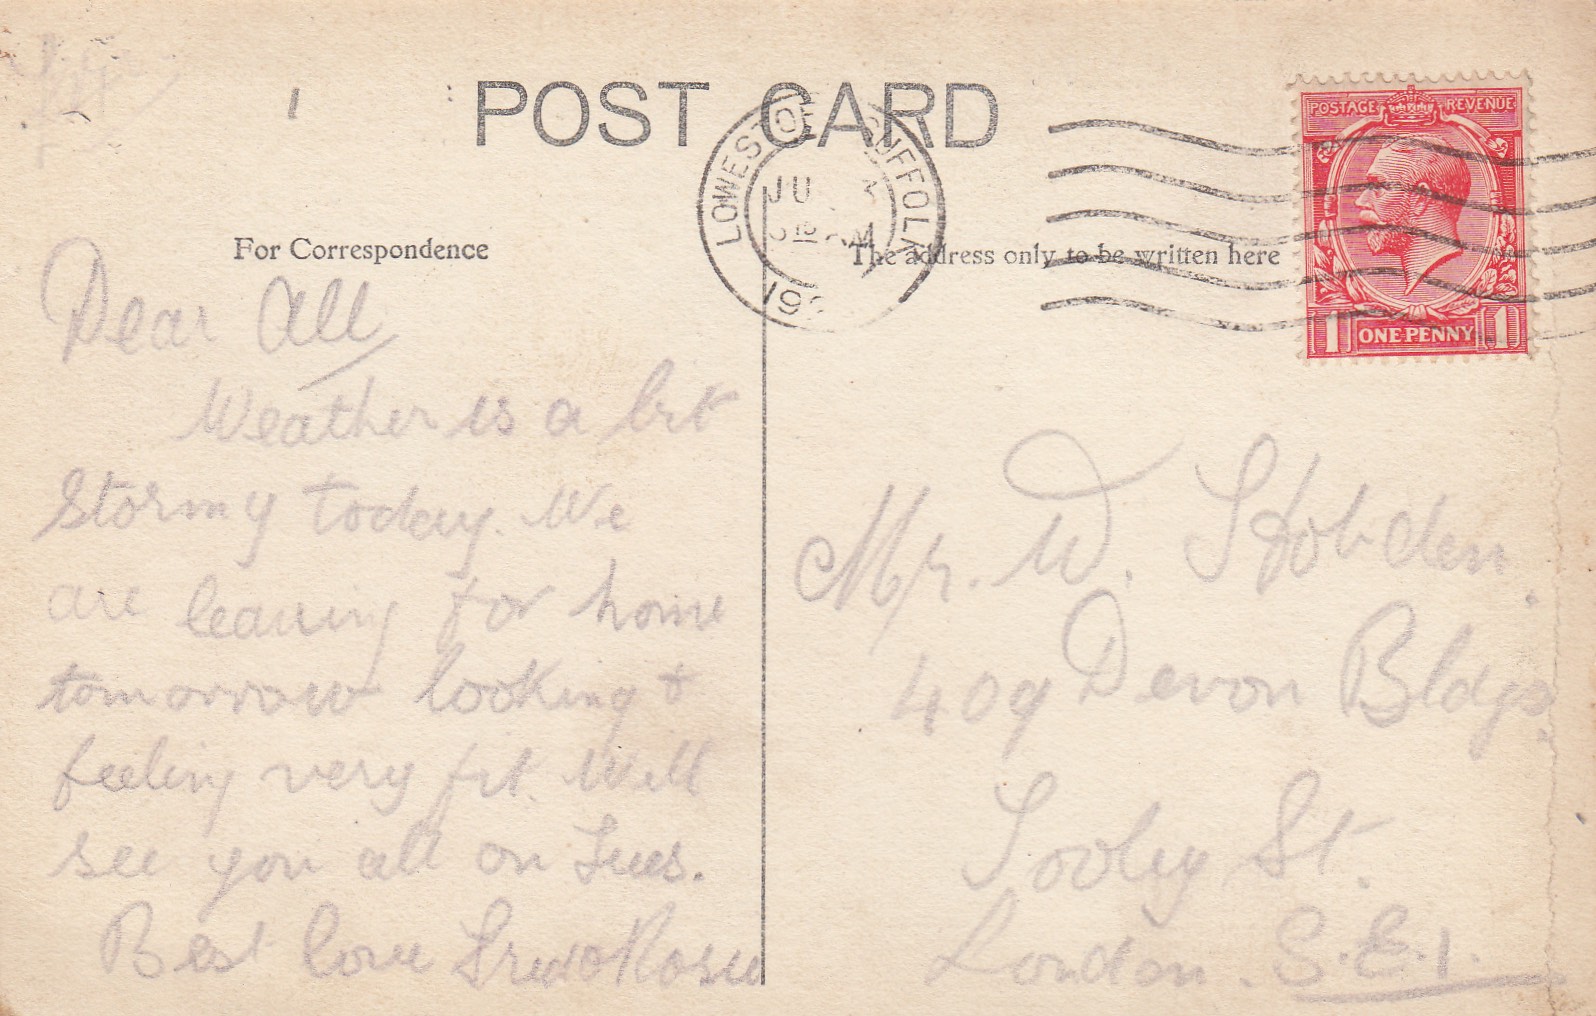 POST CARD
LOWESTOFT SUFFOLK
JU
AM
POSTAGE REVENUE
1 ONE PENNY 1
For Correspondence
The address only to be written here
Dear All
Weather is a bit
stormy today. We
are leaving for home
tomorrow looking &
feeling very fit. Will
see you all on Tues.
Best love
Mr. W. Stobden.
409 Devon Bldgs.
Tooley St.
London. S.E.1.